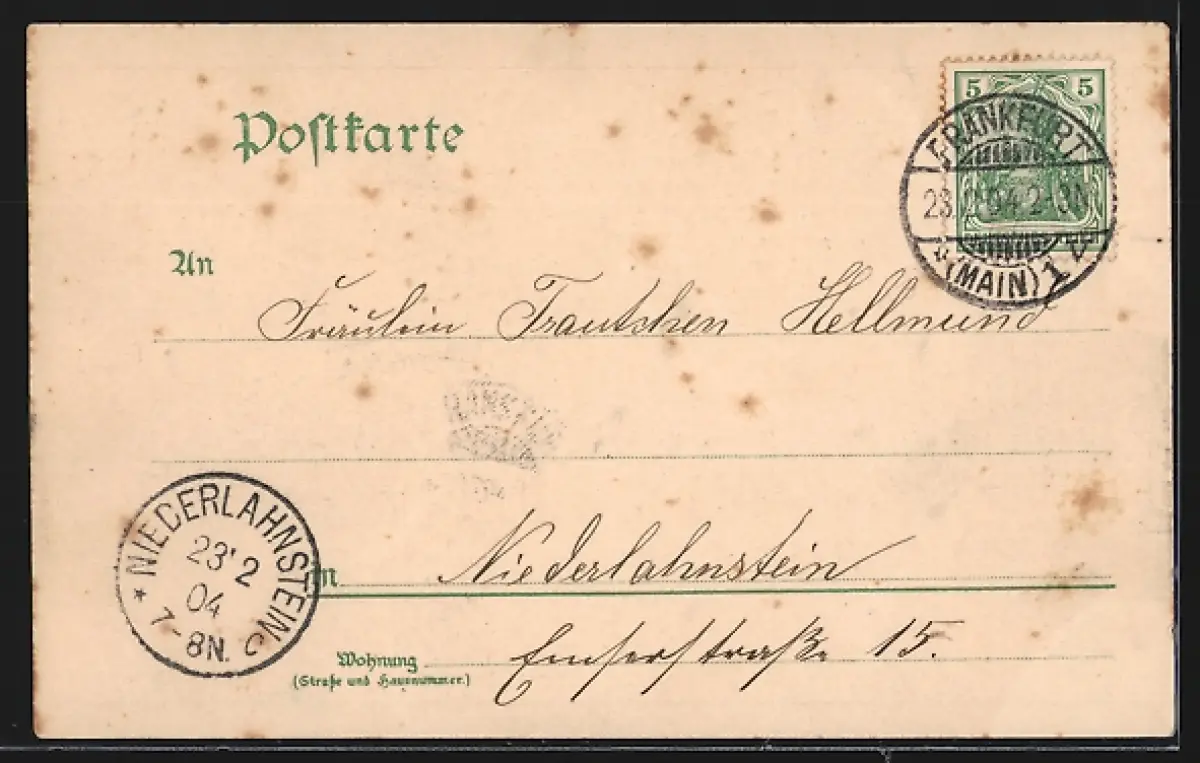 Postkarte
5 5
FRANKFURT
23. 2 04. 2-3N
(MAIN) 1
An
Fräulein Trautchen Hellmund
NIEDERLAHNSTEIN
23 2
04
7-8N.
in Niederlahnstein
Wohnung Emserstraße 15.
(Straße und Hausnummer.)